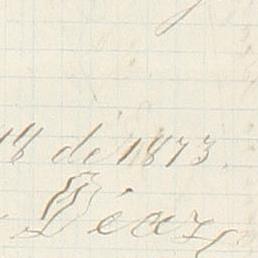 18 de 1873.
Diaz